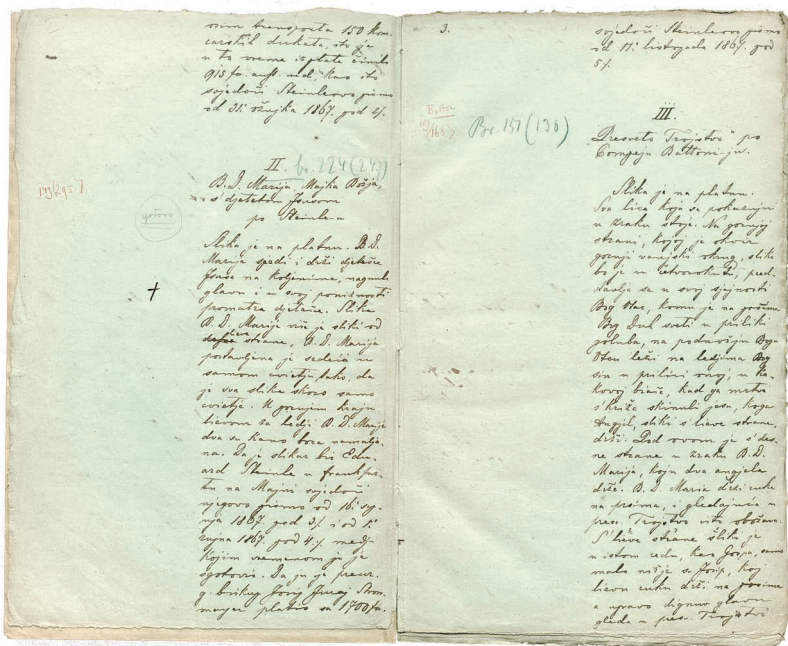 transporta 150 kom.
carskih dukata, što je
u to vreme isplate činilo
915 for. austr. vrd., kao što
svjedoči Steinleovo pismo
od 31. ožujka 1867. pod 2/.
II. br. 224 (247)
B. D. Marija, Majka Božja,
s' djetetom Isusom
po Steinle-u
gotovo
Slika je na platnu. B. D.
Marija sjedi i drži djetešce
Isusa na koljenima, nagnula
glavu i u svoj poniznosti
promatra djetešce. Slika
B. D. Marije vrh je sliki od
lieve strane, B. D. Marija
postavljena je sedeća u
samom cvietju tako, da
je sva slika skoro samo
cvietje. U gornjem kraju
lievom za ledji B. D. Marije
dva su kano boza namalja-
na. Da je slikar bio Edu-
ard Steinle u Frankfur-
tu na Majni svjedoči
njegovo pismo od 16. svib-
nja 1867. pod 3/. i od 1.
rujna 1867. pod 4./. medj
kojim vremenom ju je
zgotovio. Da ju je preuz.
g. biskup Josip Juraj Stros-
mayer platio sa 1700 for.
3.
svjedoči Steinleovo pismo
od 17. listopada 1867. pod
5/.
III.
Br. 151 (136)
"Presveto Trojstvo" po
Pompeju Battoni-ju.
Slika je na platnu.
Sva lica koja se pokazuju
u zraku stoje. Na gornjoj
strani, kojoj je okvir
gornji vanjski okrug, slika
bo je u četverokutu, pred-
stavlja se u svoj sjajnosti
Bog Otac, komu je na prsima
Bog Duh sveti u priliki
goluba, na podnožju Boga
Otca leži na ledjima Bog
sin u prilici onoj, u ka-
kovoj biaše, kad ga mrtva
s' križa skinuli jesu, koga
Angjel, sliki s' lieve strane,
drži. Pod ovom je s' des-
ne strane u zraku B. D.
Marija, koju dva angjela
drže. B. D. Maria drži ruke
na prsima, i gledajući u
pres. Trojstvo isto obožava.
S' lieve strane sliki je
u istom redu, kao Gospa, samo
malo niže sv. Josip, koj
lievu ruku drži na prsima
a upravo dignuv glavu
gleda u pres. Trojstvo